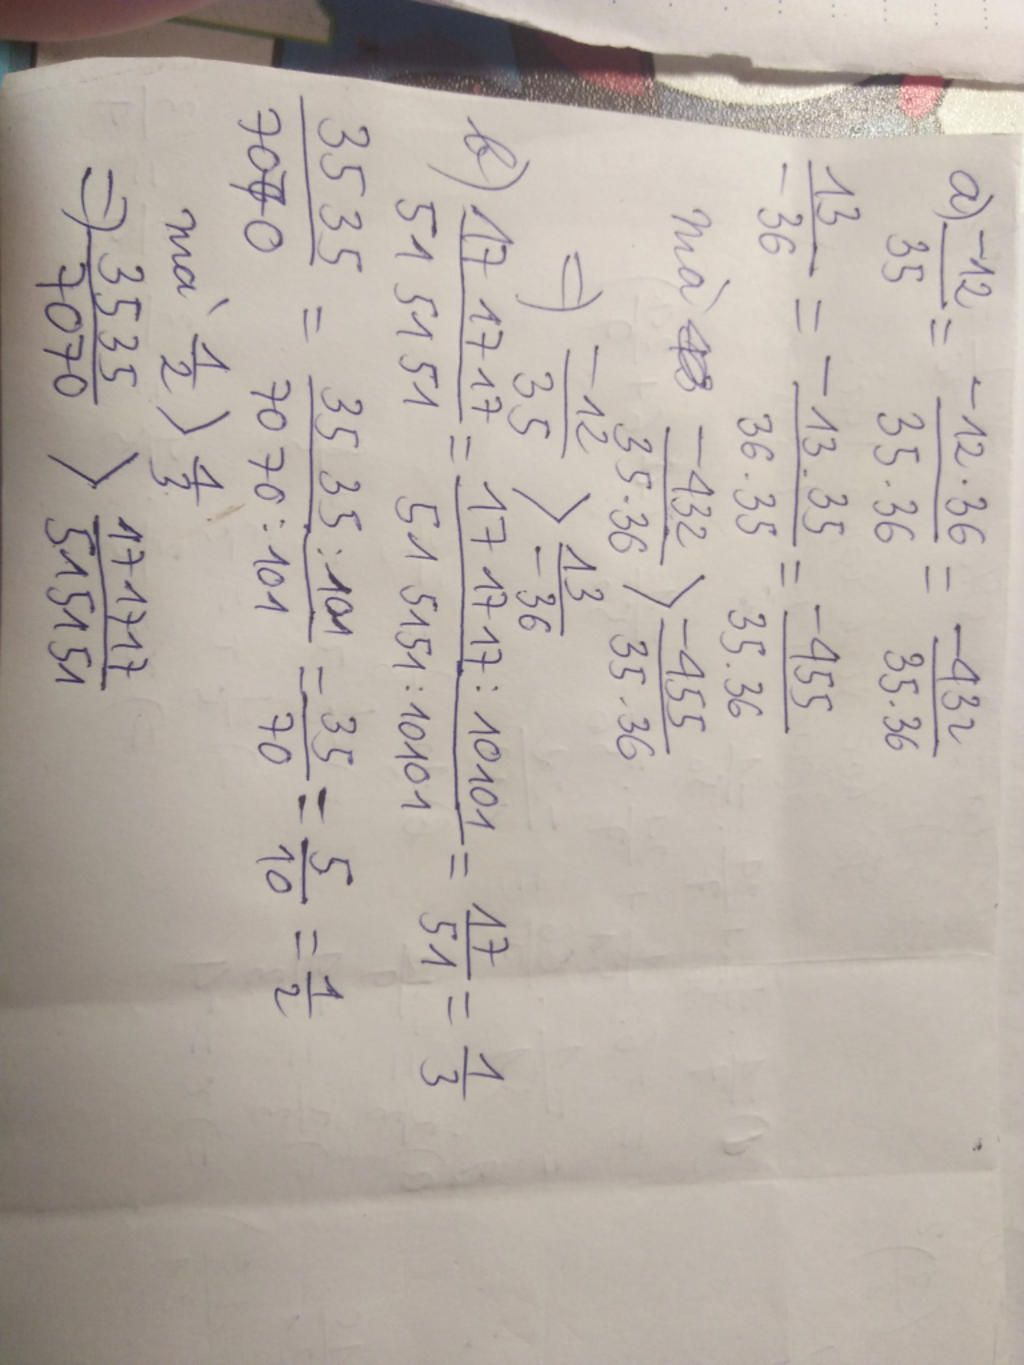 a) -12/35 = -12.36/35.36 = -432/35.36
13/-36 = -13.35/36.35 = -455/35.36
mà -432/35.36 > -455/35.36
=) -12/35 > 13/-36
b) 171717/515151 = 171717:10101/515151:10101 = 17/51 = 1/3
3535/7070 = 3535:101/7070:101 = 35/70 = 5/10 = 1/2
mà 1/2 > 1/3
=) 3535/7070 > 171717/515151